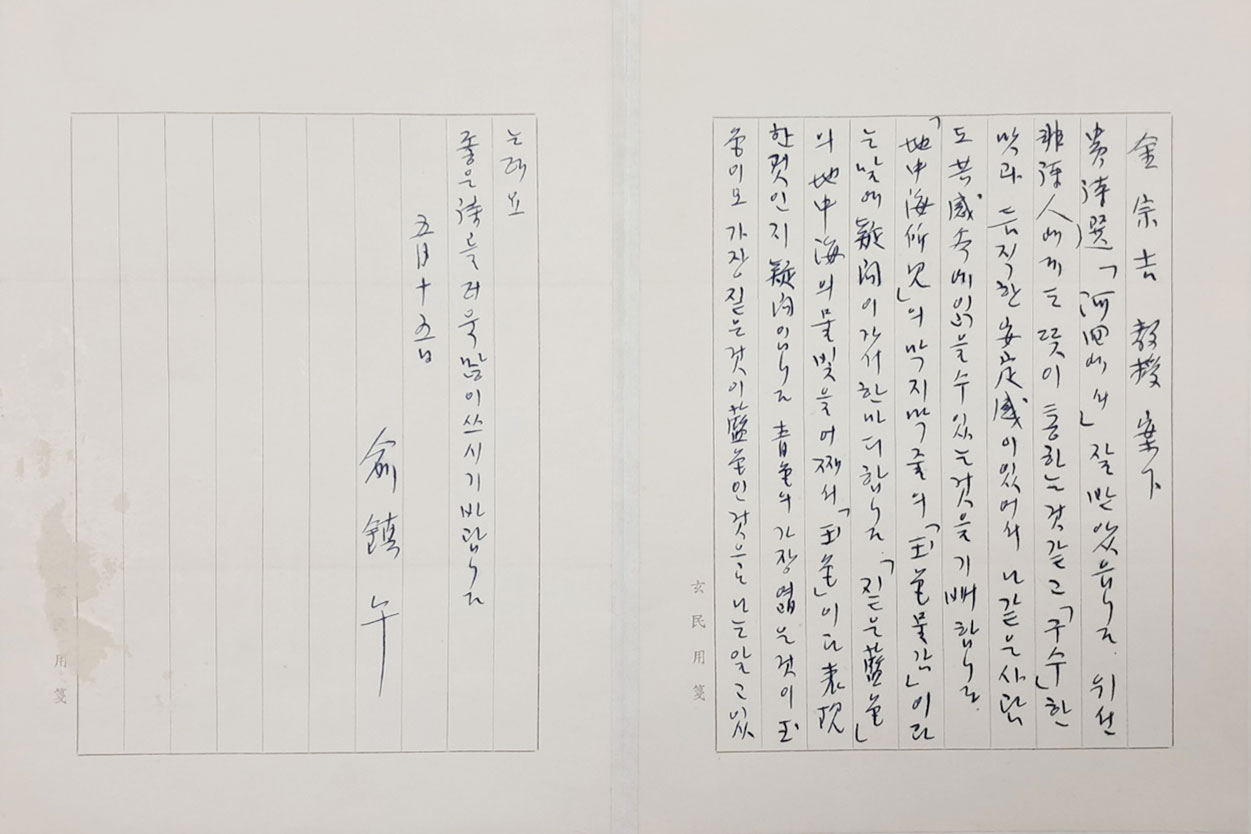 金宗吉 教授 案下
貴詩選「河回에서」 잘 받았읍니다. 위선
非詩人에게도 뜻이 통하는 것 같고 「구수」한
맛과 듬직한 安定感이 있어서 나 같은 사람
도 共感 속에 읽을 수 있는 것을 기뻐합니다.
「地中海所見」의 막지막 줄의 「玉色 물감」이라
는 말에 疑問이 가서 한마디 합니다. 「짙은 藍色」
의 地中海의 물빛을 어째서 「玉色」이라 表現
한 것인지 疑問입니다. 靑色의 가장 엷은 것이 玉
色이요 가장 짙은 것이 藍色인 것으로 나는 알고 있
는데요
좋은 詩를 더욱 많이 쓰시기 바랍니다
五月十五日
兪鎭午
玄民用箋
用箋